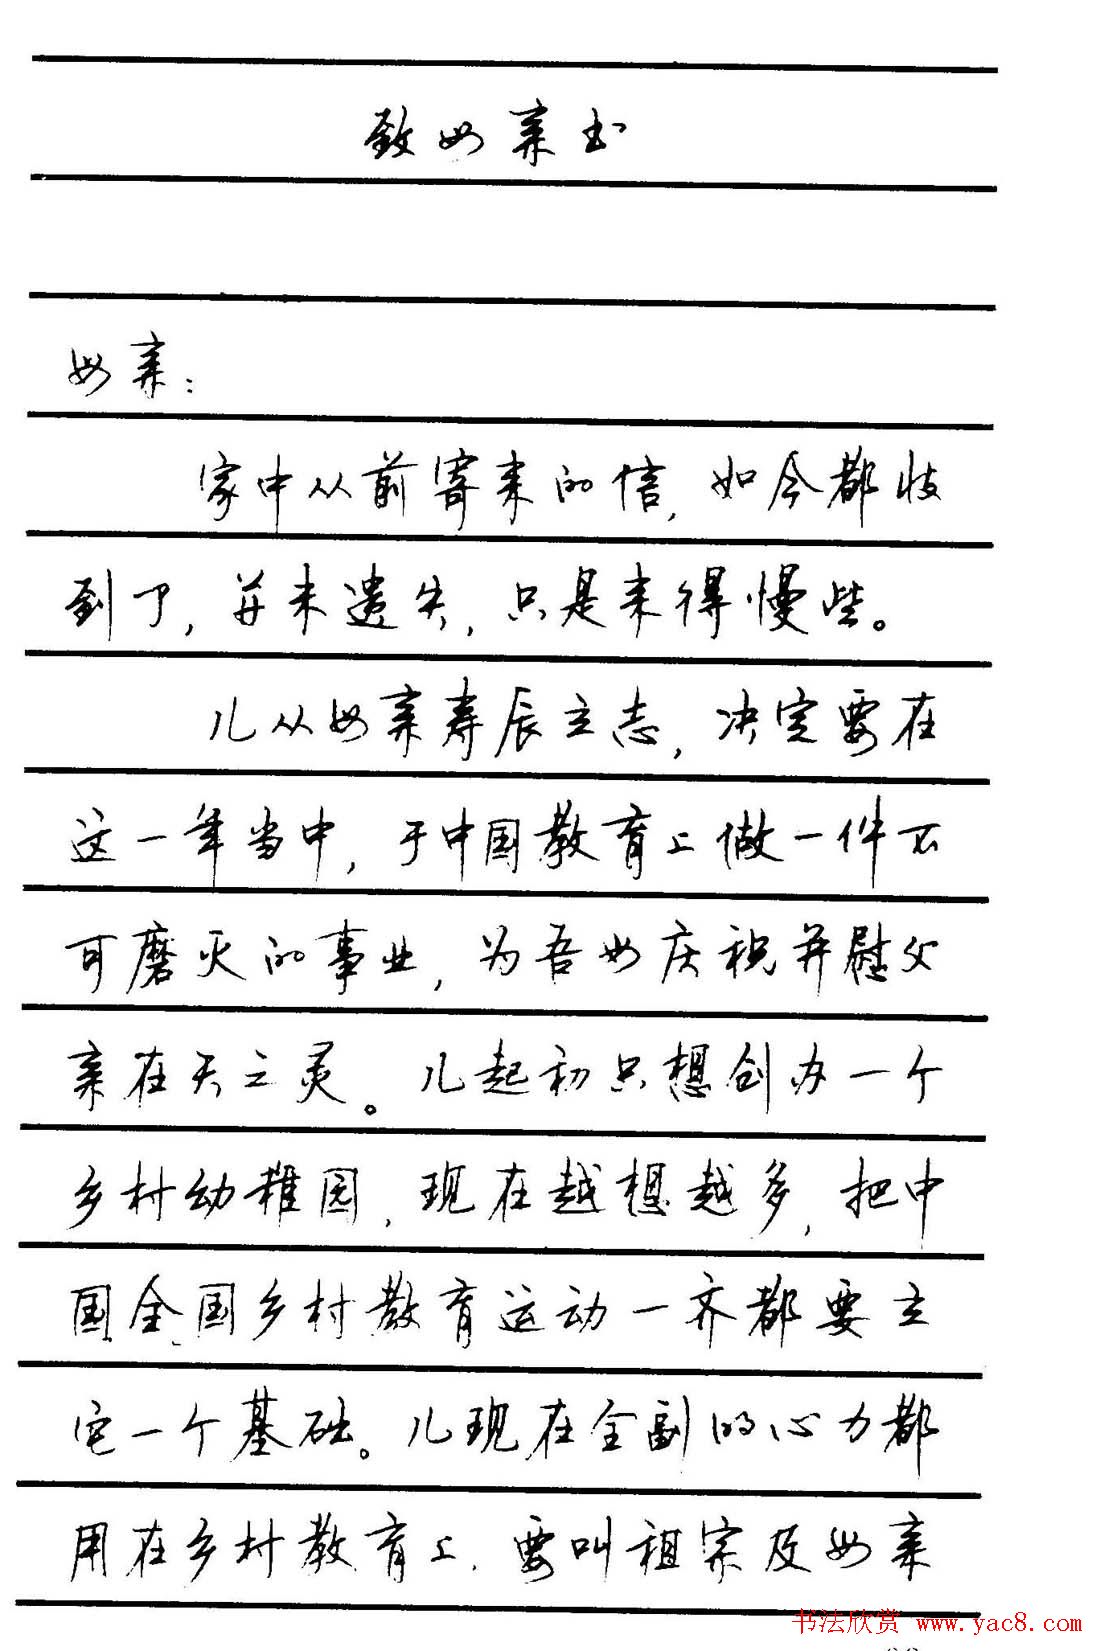 致母亲书
母亲:
家中从前寄来的信,如今都收
到了,并未遗失,只是来得慢些。
儿从母亲寿辰立志,决定要在
这一年当中,于中国教育上做一件不
可磨灭的事业,为吾母庆祝并慰父
亲在天之灵。儿起初只想创办一个
乡村幼稚园,现在越想越多,把中
国全国乡村教育运动一齐都要立
它一个基础。儿现在全副的心力都
用在乡村教育上,要叫祖宗及母亲
书法欣赏 www.yac8.com